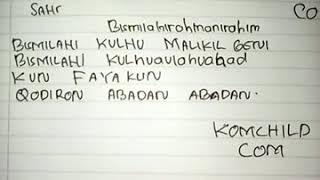 Sahr CO
Bismilahirohmanirohim
BISMILAHI KULHU MALIKIL GENI
BISMILAHI KULHUAULAHUAHAD
KUN FAYAKUN
QODIRON ABADAN ABADAN.
KOMCHILD
COM